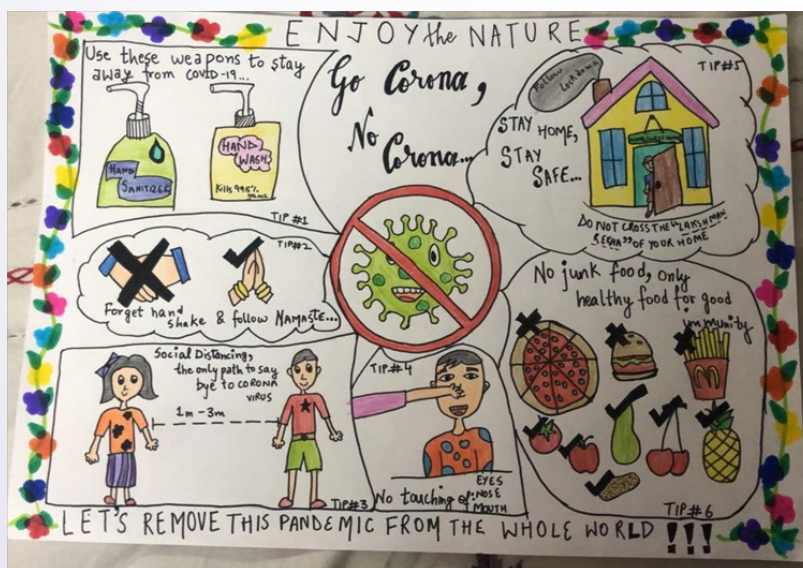 ENJOY the NATURE
Use these weapons to stay
away from COVID-19...
HAND
SANITIZER
HAND
WASH
Kills 99.5%
germs
TIP #1
Go Corona,
No
Corona...
TIP #5
Follow
Lockdown
STAY HOME,
STAY
SAFE...
DO NOT CROSS THE "LAKSHMAN
REKHA" OF YOUR HOME
TIP #2
Forget hand
shake & follow NAMASTE...
Social Distancing,
the only path to say
bye to CORONA
VIRUS
1m - 3m
TIP #3
TIP #4
No touching of:
EYES
NOSE
MOUTH
No junk food, only
healthy food for good
immunity
M
TIP #6
LET'S REMOVE THIS PANDEMIC FROM THE WHOLE WORLD !!!